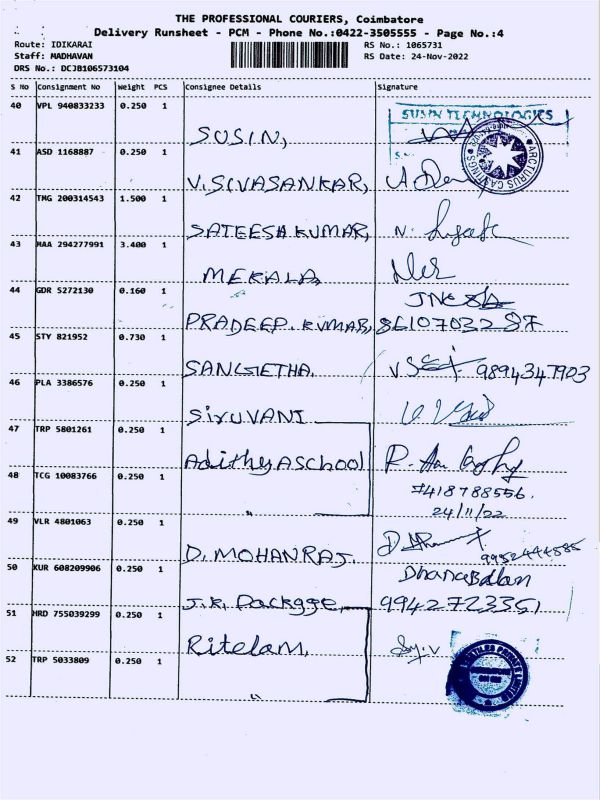 THE PROFESSIONAL COURIERS, Coimbatore
Delivery Runsheet - PCM - Phone No.:0422-3505555 - Page No.:4
Route: IDIKARAI RS No.: 1065731
Staff: MADHAVAN RS Date: 24-Nov-2022
DRS No.: DCJB106573104
S No Consignment No Weight PCS Consignee Details Signature
40 VPL 940833233 0.250 1 SUSIN,
SUSIN TECHNOLOGIES
ARCTURUS CASTINGS
41 ASD 1168887 0.250 1 V.SIVASANKAR,
42 TMG 200314543 1.500 1 SATEESH KUMAR,
43 MAA 294277991 3.400 1 MEKALA,
44 GDR 5272130 0.160 1 PRADEEP. KUMAR, 8610703287
45 STY 821952 0.730 1 SANGEETHA. 9894347903
46 PLA 3386576 0.250 1 SIRUVANI
47 TRP 5801261 0.250 1 Adithya School
48 TCG 10083766 0.250 1 "
7418788556.
24/11/22
49 VLR 4801063 0.250 1 D. MOHANRAJ. 9952444585
50 KUR 608209906 0.250 1 J.K. Packgge, Dhanabalan
9942723351
51 HRD 755039299 0.250 1 Ritelam,
PRIVATE LIMITED
52 TRP 5033809 0.250 1 "